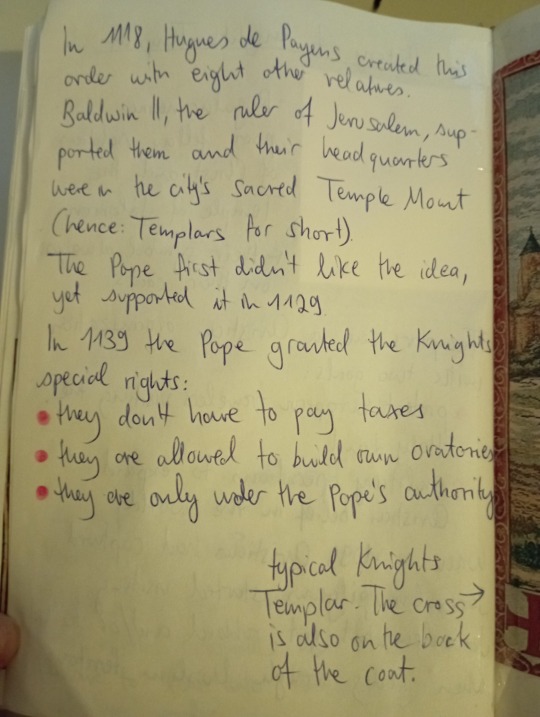 In 1118, Hugues de Payens created this
order with eight other relatives.
Baldwin II, the ruler of Jerusalem, sup-
ported them and their headquarters
were in the city's sacred Temple Mount
(hence: Templars for short).
The Pope first didn't like the idea,
yet supported it in 1129.
In 1139 the Pope granted the Knights
special rights:
• they don't have to pay taxes
• they are allowed to build own oratories
• they are only under the Pope's authority
typical Knights
Templar. The cross →
is also on the back
of the coat.